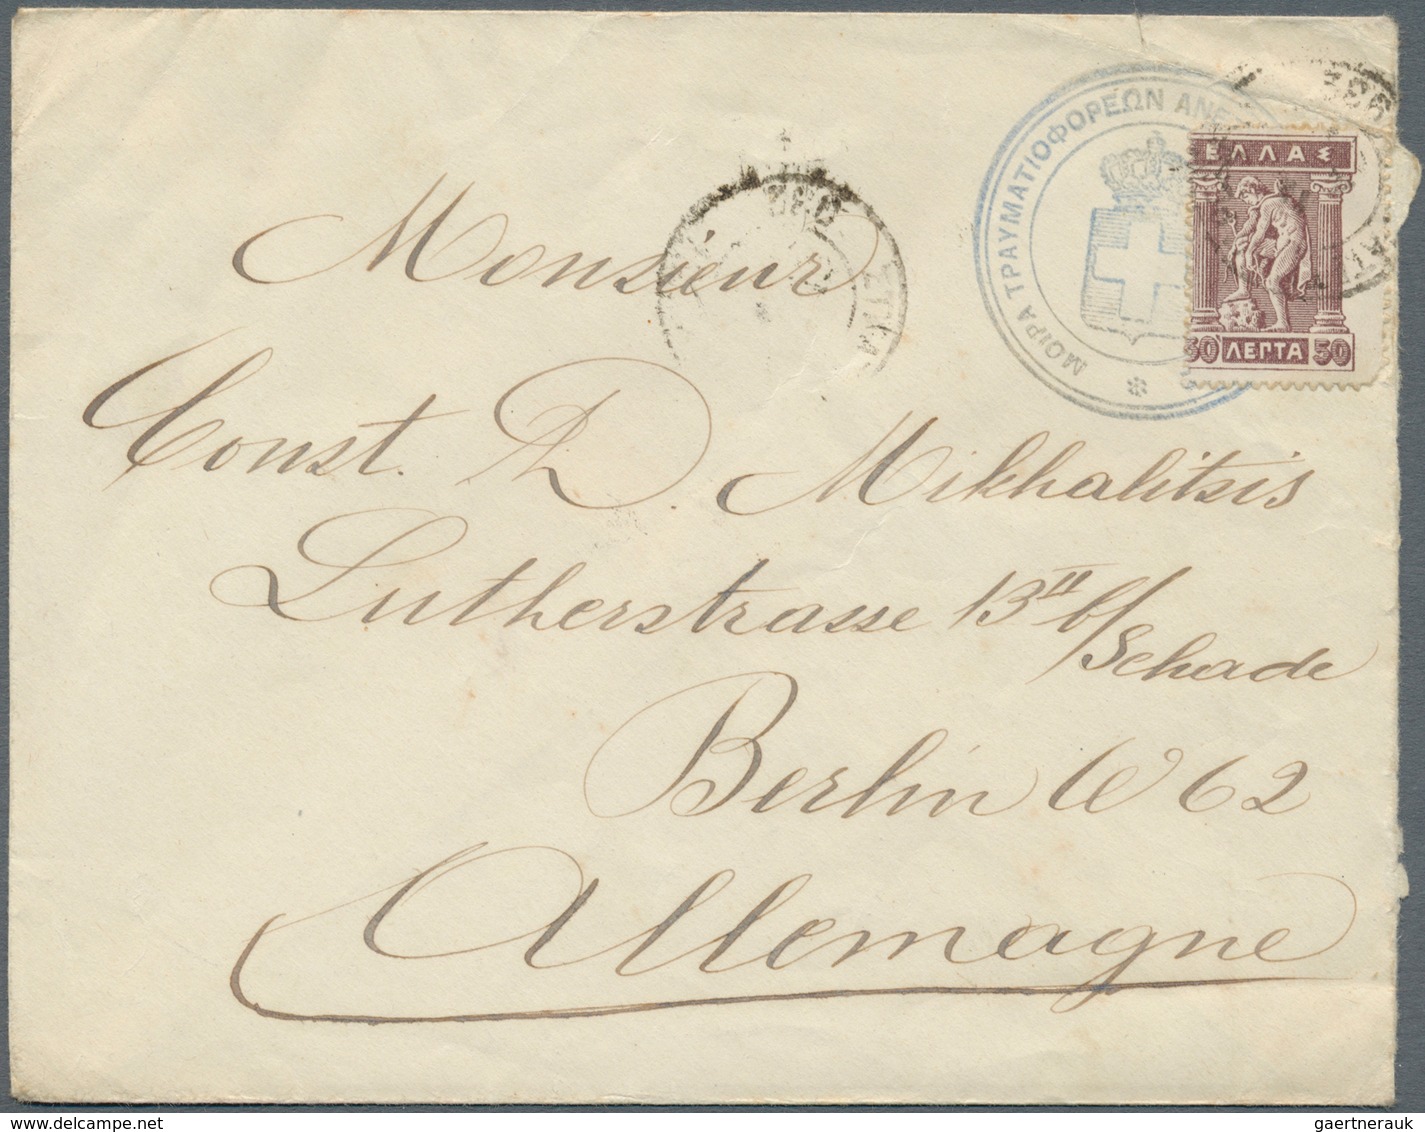 ΜΟΙΡΑ ΤΡΑΥΜΑΤΙΟΦΟΡΕΩΝ ΑΝΕ
ΕΛΛΑΣ
50 ΛΕΠΤΑ 50
Monsieur
Const. D. Mikhalitsis
Lutherstrasse 13 II b/
Schade
Berlin W 62
Allemagne
gaertnerauk